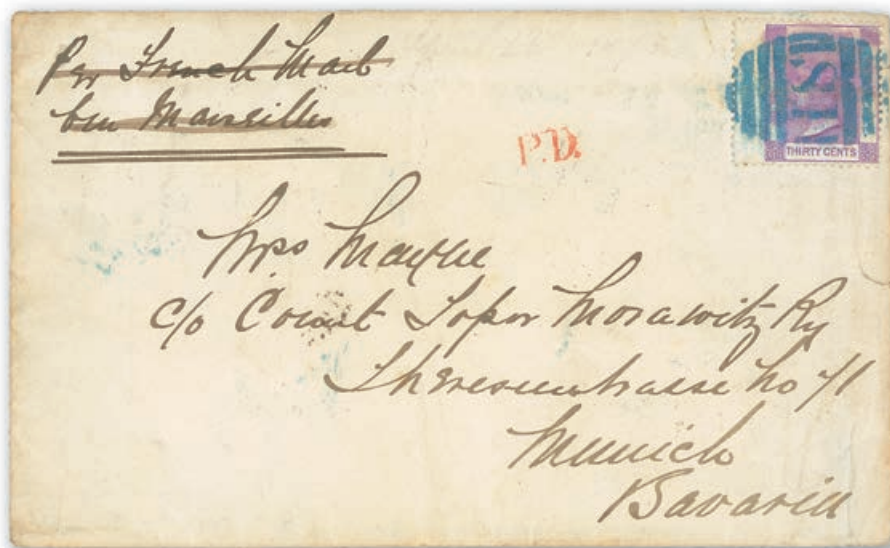 Per French Mail
via Marseilles
P.D.
THIRTY CENTS
Mrs
c/o Count Topor Morawitzky
Theresienstrasse No 71
Munich
Bavaria